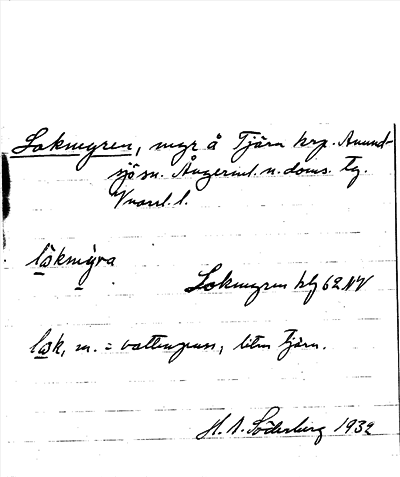 Lokmyren, myr å Tjärn krp. Anund-
sjö sn. Ångerml. n. doms. tg.
l.
låkmýra
Lokmyren blj 62 NV
låk, m. = vattenpuss, liten tjärn.
H. A. Söderberg 1932